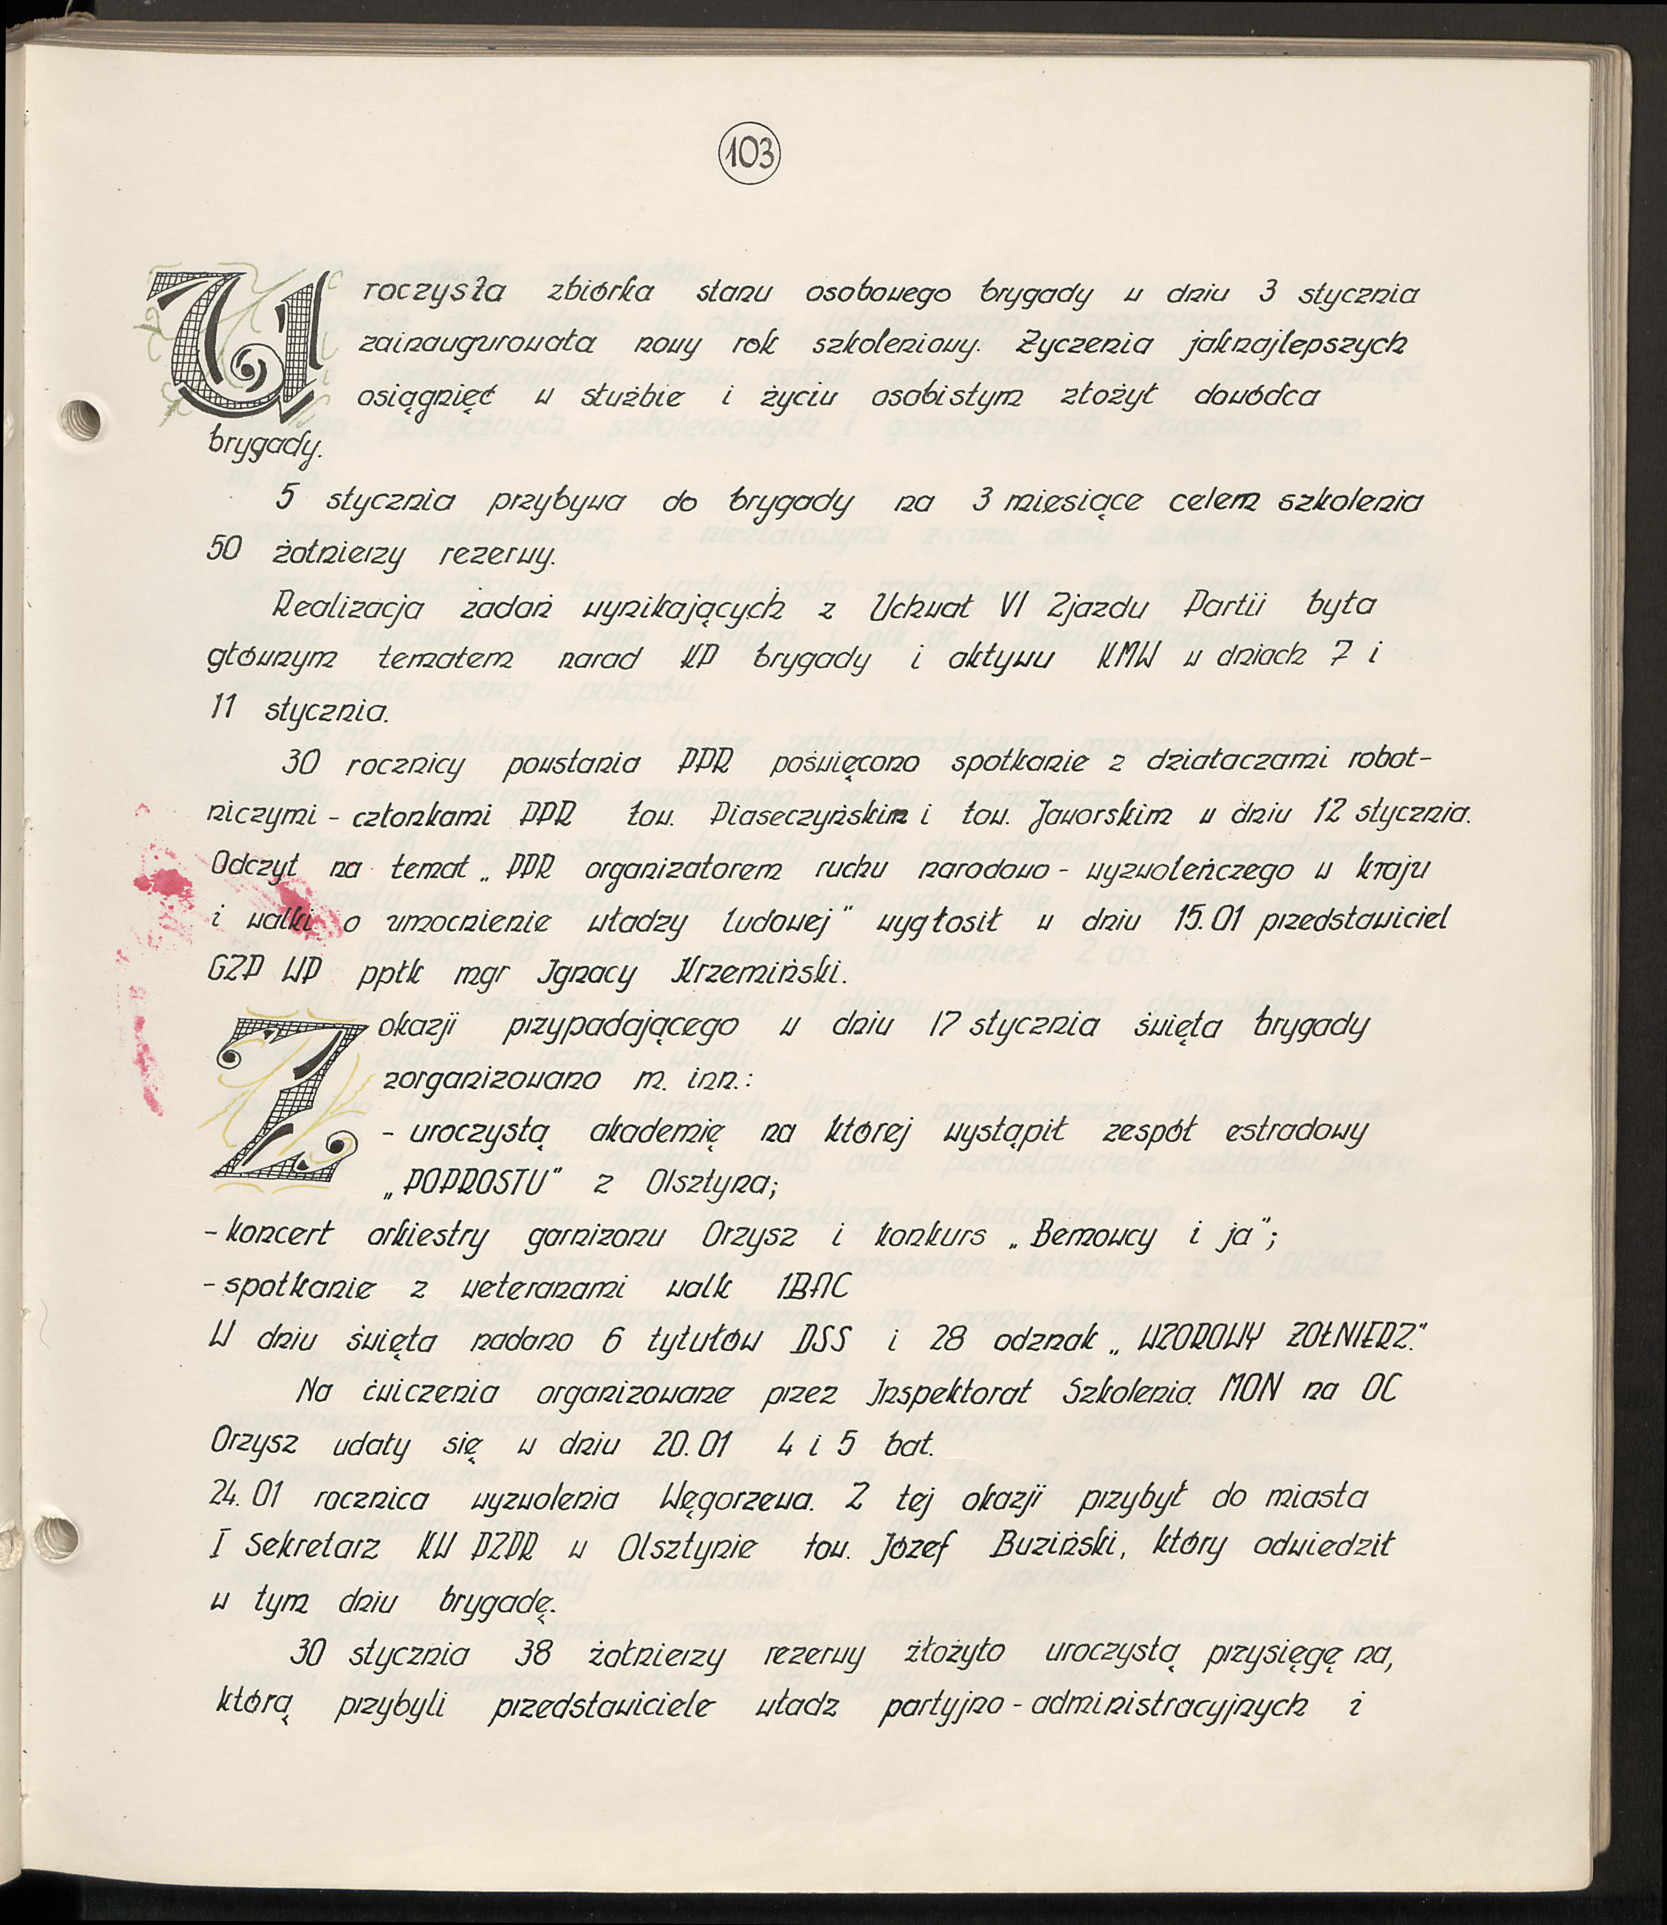 103
Uroczysta zbiórka stanu osobowego brygady w dniu 3 stycznia
zainaugurowała nowy rok szkoleniowy. Życzenia jaknajlepszych
osiągnięć w służbie i życiu osobistym złożył dowódca
brygady.
5 stycznia przybywa do brygady na 3 miesiące celem szkolenia
50 żołnierzy rezerwy.
Realizacja zadań wynikających z Uchwał VI Zjazdu Partii była
głównym tematem narad KP brygady i aktywu KMW w dniach 7 i
11 stycznia.
30 rocznicy powstania PPR poświęcono spotkanie z działaczami robot-
niczymi - członkami PPR tow. Piaseczyńskim i tow. Jaworskim w dniu 12 stycznia.
Odczyt na temat „PPR organizatorem ruchu narodowo - wyzwoleńczego w kraju
i walki o umocnienie władzy ludowej" wygłosił w dniu 15.01 przedstawiciel
GZP WP ppłk mgr Ignacy Krzemiński.
Z okazji przypadającego w dniu 17 stycznia święta brygady
zorganizowano m. inn.:
- uroczystą akademię na której wystąpił zespół estradowy
„POPROSTU" z Olsztyna;
- koncert orkiestry garnizonu Orzysz i konkurs „Bemowcy i ja";
- spotkanie z weteranami walk 1BAC
W dniu święta nadano 6 tytułów DSS i 28 odznak „WZOROWY ŻOŁNIERZ."
Na ćwiczenia organizowane przez Inspektorat Szkolenia MON na OC
Orzysz udały się w dniu 20.01 4 i 5 bat.
24.01 rocznica wyzwolenia Węgorzewa. Z tej okazji przybył do miasta
I Sekretarz KW PZPR w Olsztynie tow. Józef Buziński, który odwiedził
w tym dniu brygadę.
30 stycznia 38 żołnierzy rezerwy złożyło uroczystą przysięgę na,
którą przybyli przedstawiciele władz partyjno - administracyjnych i